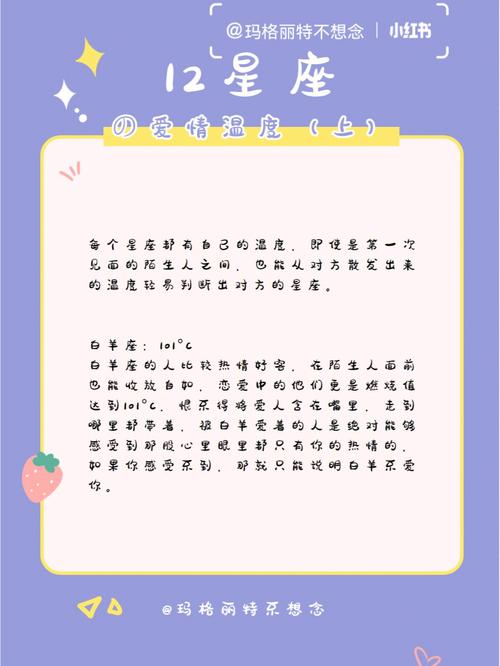 @玛格丽特不想念 | 小红书
12星座
の爱情温度（上）
每个星座都有自己的温度，即使是第一次
见面的陌生人之间，也能从对方散发出来
的温度轻易判断出对方的星座。
白羊座：101°C
白羊座的人比较热情好客，在陌生人面前
也能收放自如，恋爱中的他们更是燃烧值
达到101°C，恨不得将爱人含在嘴里，走到
哪里都带着，被白羊爱着的人是绝对能够
感受到那股心里眼里都只有你的热情的，
如果你感受不到，那就只能说明白羊不爱
你。
@玛格丽特不想念